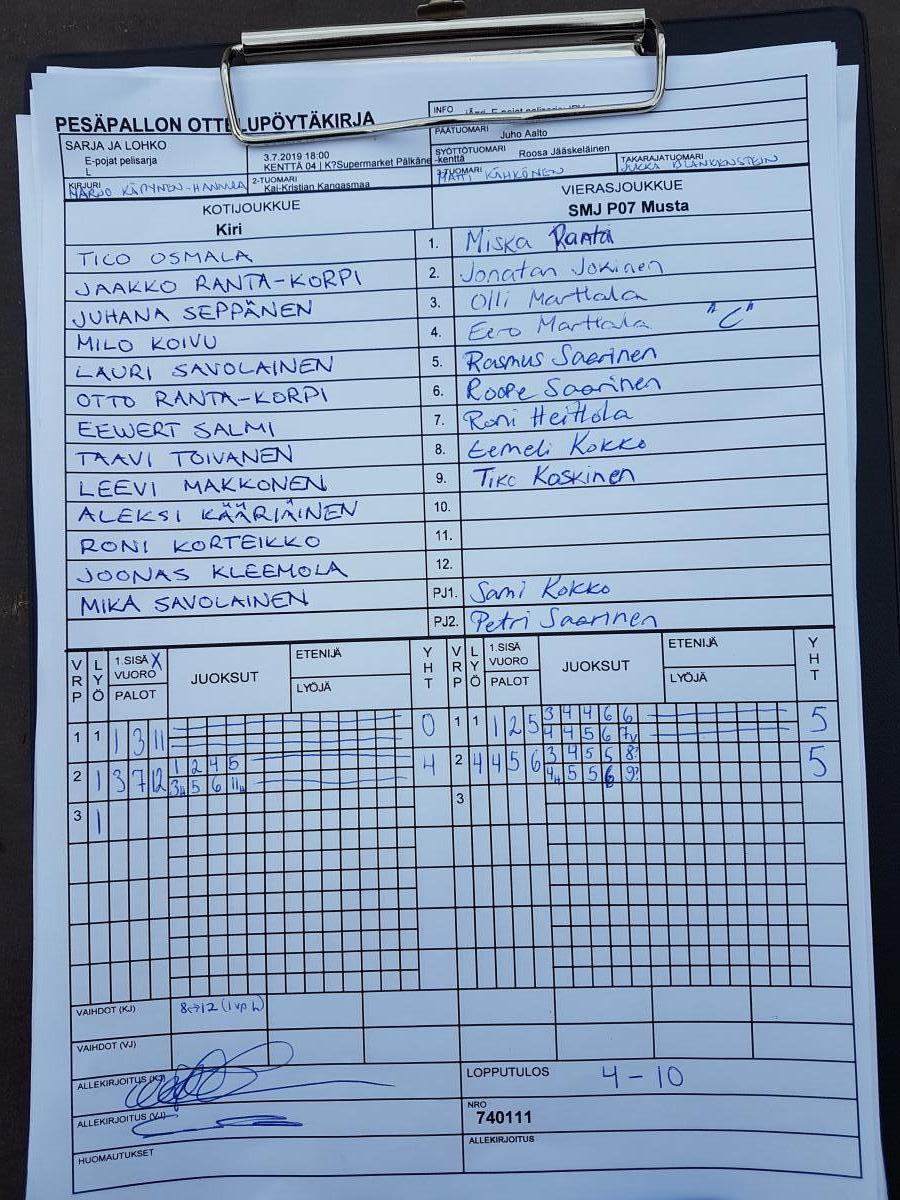 PESÄPALLON OTTELUPÖYTÄKIRJA
INFO
SARJA JA LOHKO
E-pojat pelisarja
L
3.7.2019 18:00
KENTTÄ 04 | K?Supermarket Pälkäne -kenttä
PÄÄTUOMARI Juho Aalto
SYÖTTÖTUOMARI Roosa Jääskeläinen
KIRJURI
2-TUOMARI
Kai-Kristian Kangasmaa
3-TUOMARI
MATTI KÄHKÖNEN
TAKARAJATUOMARI
JUKKA BLANKENSTEIN
KOTIJOUKKUE
Kiri
VIERASJOUKKUE
SMJ P07 Musta
TICO OSMALA 1. Miska Ranta
JAAKKO RANTA-KORPI 2. Jonatan Jokinen
JUHANA SEPPÄNEN 3. Olli Marttala
MILO KOIVU 4. Eero Marttala "C"
LAURI SAVOLAINEN 5. Rasmus Saarinen
OTTO RANTA-KORPI 6. Roope Saarinen
EEWERT SALMI 7. Roni Heittola
TAAVI TOIVANEN 8. Eemeli Kokko
LEEVI MAKKONEN 9. Tiko Koskinen
ALEKSI KÄÄRIÄINEN 10.
RONI KORTEIKKO 11.
JOONAS KLEEMOLA 12.
MIKA SAVOLAINEN PJ1. Sami Kokko
PJ2. Petri Saarinen
VRP LYÖ 1.SISÄ X VUORO PALOT JUOKSUT ETENIJÄ LYÖJÄ YHT VRP LYÖ 1.SISÄ VUORO PALOT JUOKSUT ETENIJÄ LYÖJÄ YHT
1 1 1 3 11 0 1 1 1 2 5 3 4 4 6 6 5
4 4 5 6 7v
2 1 3 7 12 1 2 4 5 4 2 4 4 5 6 3 4 5 5 8? 5
5 6 5 5 6 9?
3 1 3
VAIHDOT (KJ) 8↔12 (1vp L)
VAIHDOT (VJ)
ALLEKIRJOITUS (KJ)
LOPPUTULOS 4-10
ALLEKIRJOITUS (VJ)
NRO
740111
HUOMAUTUKSET
ALLEKIRJOITUS